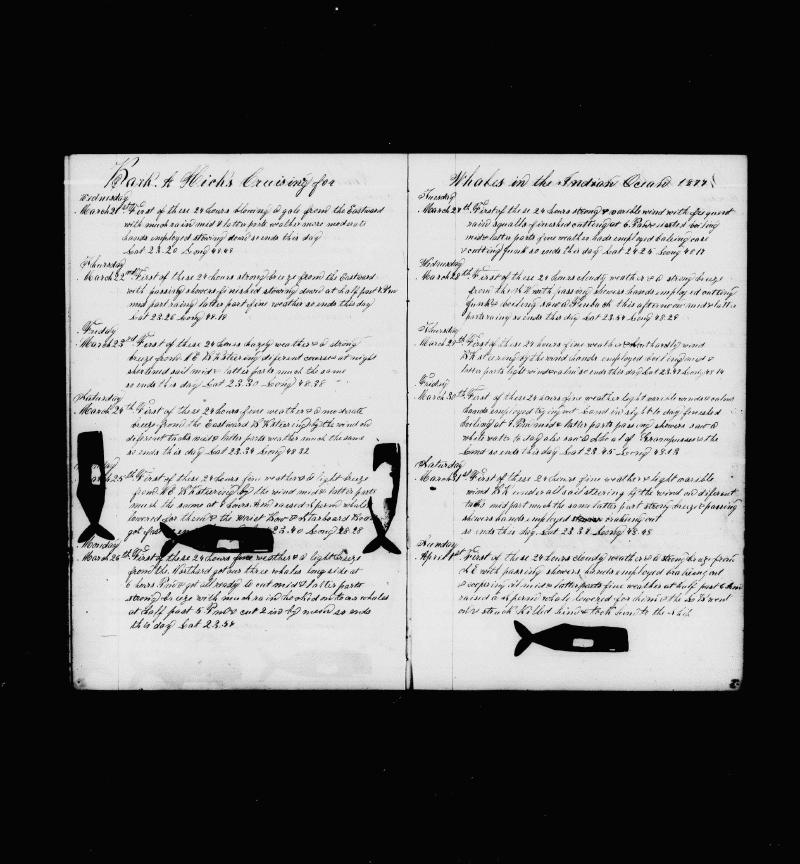 Bark. A Hicks Cruising for
Wednesday
March 21st First of these 24 hours blowing a gale from the Eastward
with much rain mid & latter parts weather more moderate
hands employed stowing down so ends this day
Lat 23.20 Long 49.49
Thursday
March 22nd First of these 24 hours strong breeze from the Eastward
with passing showers finished stowing down at half past Pm
mid part rainy latter part fine weather so ends this day
Lat 23.26 Long 48.18
Friday
March 23rd First of these 24 hours hazy weather & a strong
breeze from N E Bk steering different courses at night
shortened sail mid & latter parts much the same
so ends this day Lat 23.30 Long 48.38
Saturday
March 24th First of these 24 hours fine weather & a moderate
breeze from the Eastward Bk steering by the wind on
different tacks mid & latter parts weather much the same
so ends this day Lat 23.34 Long 48.32
March 25th First of these 24 hours fine weather & light breeze
from N E Bk steering by the wind mid & latter parts
much the same at hours Am raised Sperm whales
lowered for them & the Waist Bow & Starboard Boats
got 23.40 Long 48.28
Monday
March 26th First of these 24 hours fine weather & a light breeze
from the Northard got our three whales long side at
6 hours Pm & got all ready to cut mid & latter parts
strong breeze with much rain hooked on to our whales
at half past 5 Pm & cut 2 in by noon so ends
this day Lat 23.34
Whales in the Indian Ocean 1877
Tuesday
March 27th First of these 24 hours strong & varible wind with frequent
rain squalls finished cutting at 6 Pm started boiling
mid & latter parts fine weather hands employed bailing case
& cutting junk so ends this day Lat 24.25 Long 48.17
Wednesday
March 28th First of these 24 hours cloudy weather & a strong breeze
from the N E with passing showers hands employed cutting
junk & boiling saw a this afternoon mid & latter
parts rainy so ends this day Lat 23.54 Long 48.28
Thursday
March 29th First of these 24 hours fine weather & Northardly wind
Bk steering by the wind hands employed boiling mid &
latter parts light wind & calm so ends this day Lat 23.47 Long 48.14
Friday
March 30th First of these 24 hours fine weather light variable winds & calms
hands employed trying out Land in sight to day finished
boiling at Pm mid & latter parts passing showers saw a
whale to day also saw a shoal of Grampuses & the
Land so ends this day Lat 23.45 Long 48.13
Saturday
March 31st First of these 24 hours fine weather & light varible
wind Bk under all sail steering by the wind on diferent
tacks mid part much the same latter part strong breeze & passing
showers hands employed breaking out
so ends this day Lat 23.38 Long 48.48
Sunday
April 1st First of these 24 hours cloudy weather & a strong breeze from
N E with passing showers hands employed breaking out
& coopering oil mid & latter parts fine weather at half past 6 Am
raised a sperm whale lowered for him & the went
on & struck killed him & took him to the ship